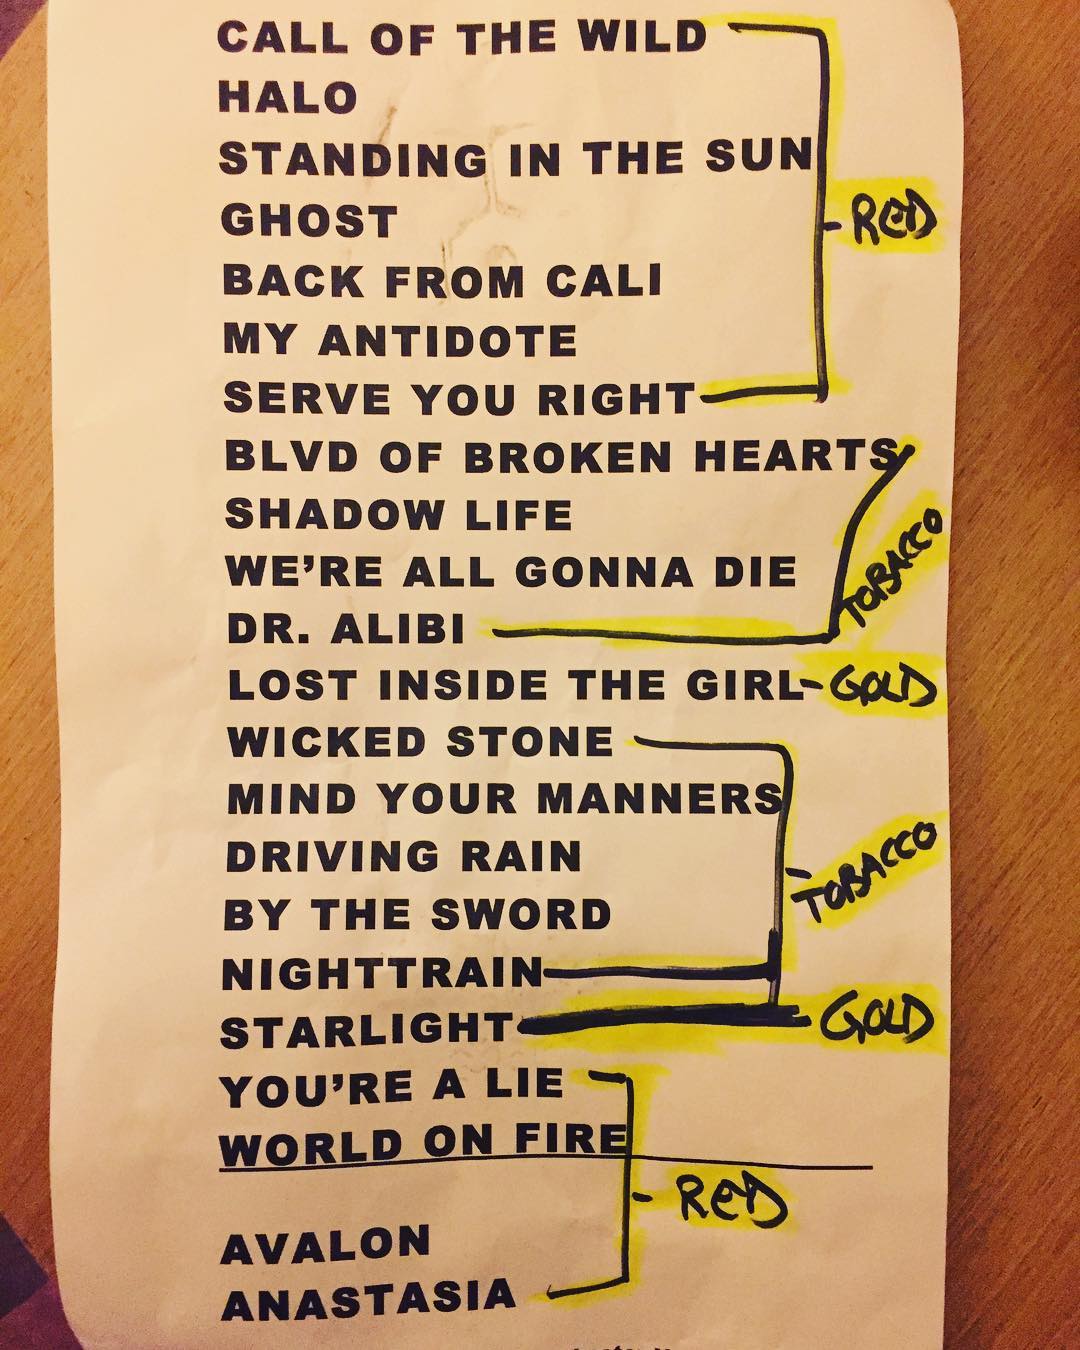 CALL OF THE WILD
HALO
STANDING IN THE SUN
GHOST
RED
BACK FROM CALI
MY ANTIDOTE
SERVE YOU RIGHT
BLVD OF BROKEN HEARTS
SHADOW LIFE
WE'RE ALL GONNA DIE
TOBACCO
DR. ALIBI
LOST INSIDE THE GIRL - GOLD
WICKED STONE
MIND YOUR MANNERS
DRIVING RAIN
TOBACCO
BY THE SWORD
NIGHTTRAIN
STARLIGHT GOLD
YOU'RE A LIE
WORLD ON FIRE
RED
AVALON
ANASTASIA